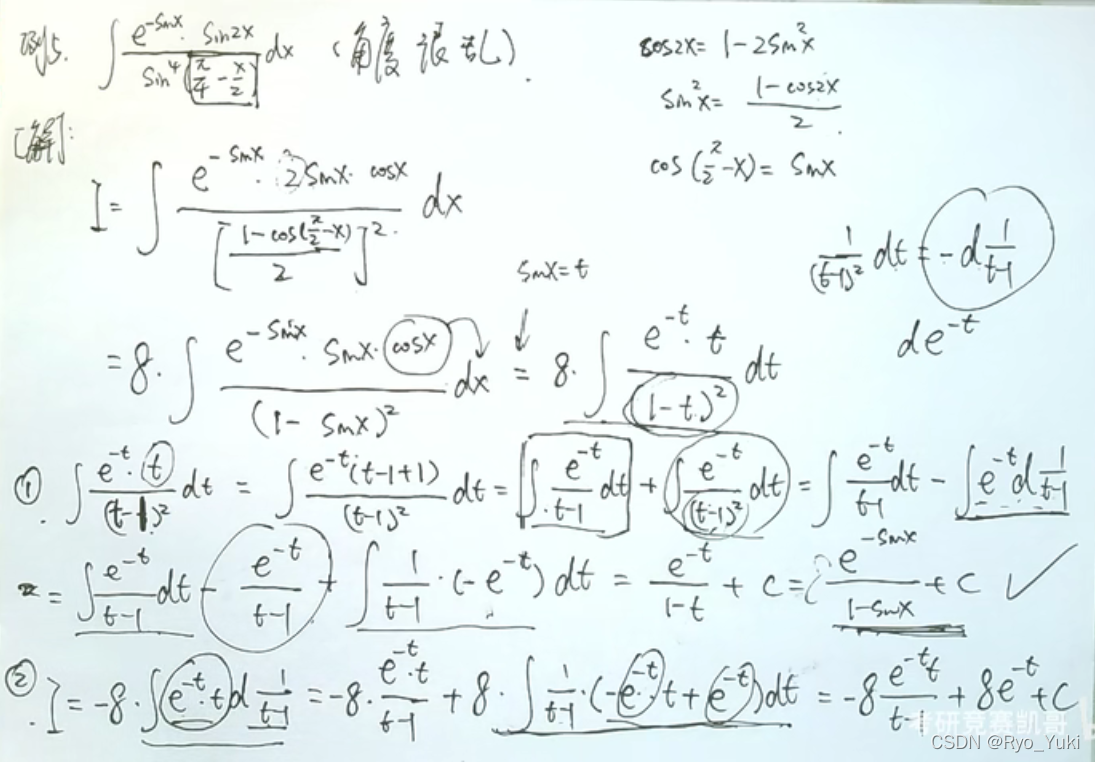 例5. ∫ e^{-sinx}·sin2x / sin⁴(π/4 - x/2) dx (角度很乱).
cos2x = 1-2sin²x
sin²x = (1-cos2x)/2.
cos(π/2-x) = sinx
[解]:
I = ∫ e^{-sinx}·2sinx·cosx / [(1-cos(π/2-x))/2]². dx
1/(t-1)² dt = -d 1/(t-1)
de^{-t}
sinx=t
= 8·∫ e^{-sinx}·sinx·cosx / (1-sinx)² dx = 8·∫ e^{-t}·t / (1-t)² dt
①. ∫ e^{-t}·t / (t-1)² dt = ∫ e^{-t}(t-1+1) / (t-1)² dt = ∫ e^{-t}/(t-1) dt + ∫ e^{-t}/(t-1)² dt = ∫ e^{-t}/(t-1) dt - ∫ e^{-t} d 1/(t-1)
= ∫ e^{-t}/(t-1) dt - e^{-t}/(t-1) + ∫ 1/(t-1)·(-e^{-t}) dt = e^{-t}/(1-t) + C = e^{-sinx}/(1-sinx) + C ✓
②. I = -8·∫ e^{-t}·t d 1/(t-1) = -8·e^{-t}·t/(t-1) + 8·∫ 1/(t-1)·(-e^{-t}t + e^{-t})dt = -8 e^{-t}t/(t-1) + 8e^{-t} + C
考研竞赛凯哥
CSDN @Ryo_Yuki